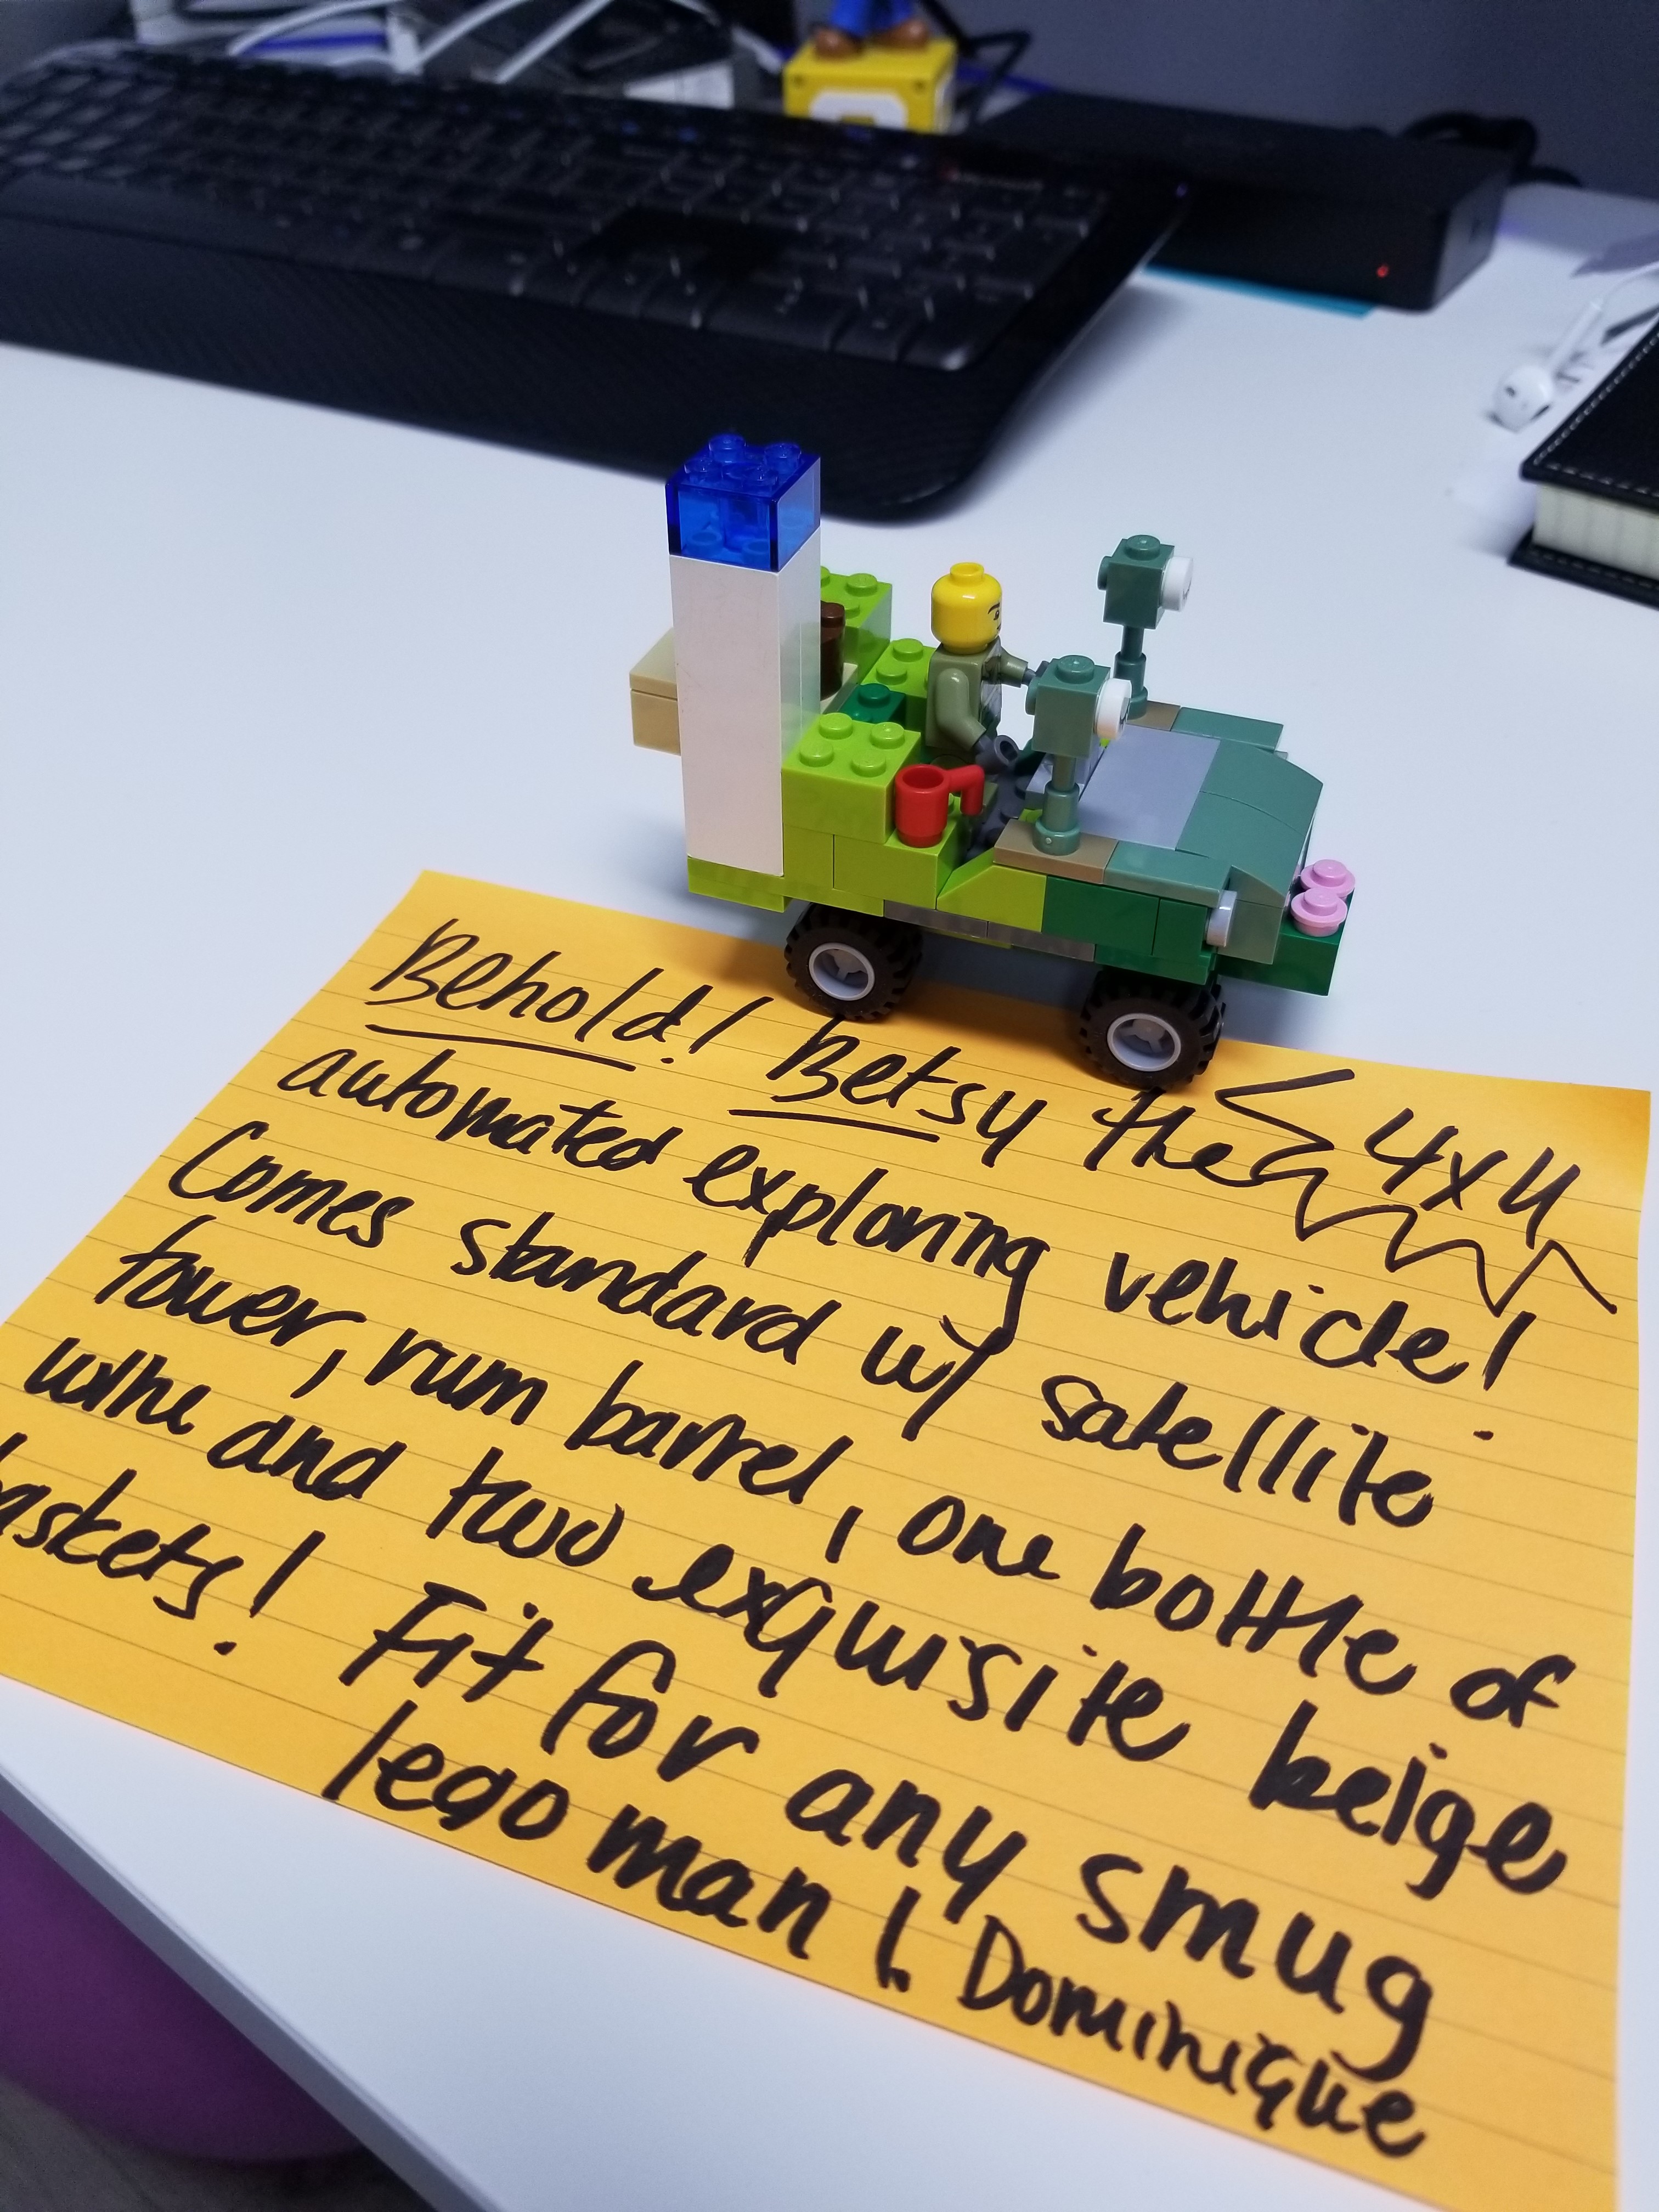 Behold! Betsy the 4x4
automated exploring vehicle!
Comes standard w/ satellite
tower, rum barrel, one bottle of
wine and two exquisite beige
baskets! Fit for any smug
lego man! Dominique